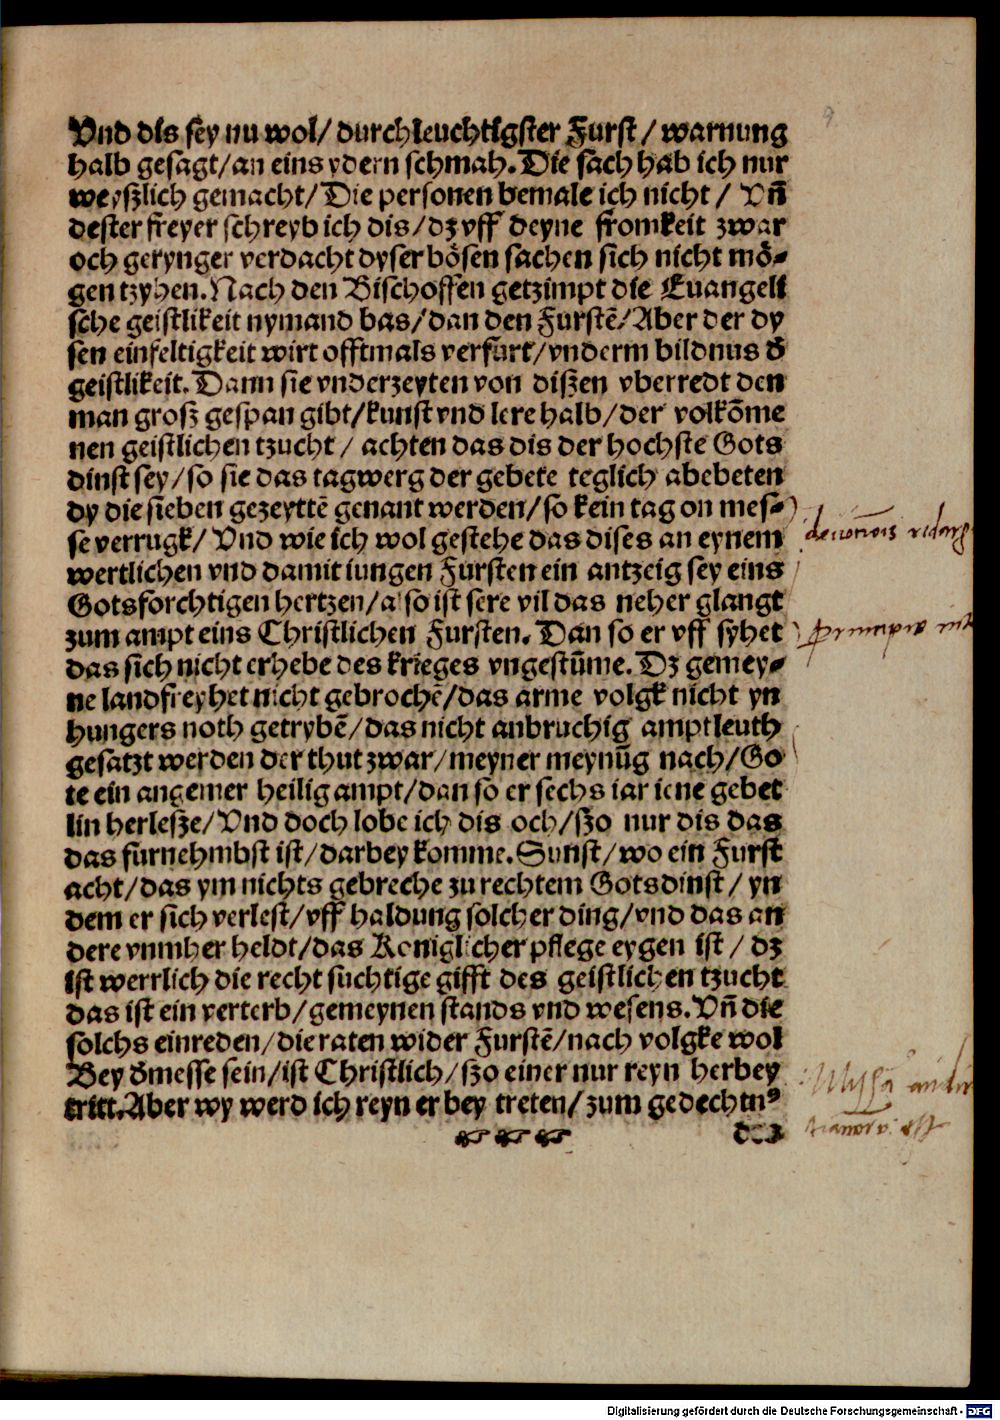 9
Vnd dis sey nu wol/ durchleuchtigster Furst/ warnung
halb gesagt/an eins ydern schmah. Die sach hab ich nur
weyszlich gemacht/ Die personen bemale ich nicht/ Vñ
dester freyer schreyb ich dis/dz vff deyne fromkeit zwar
och gerynger verdacht dyser bösen sachen sich nicht mö-
gen tzyhen. Nach den Bischoffen getzimpt die Euangeli
sche geistlikeit nymand bas/dan den Furstẽ/Aber der dy
sen einfeltigkeit wirt offtmals verfůrt/vnderm bildnus d̕
geistlikeit. Dann sie vnderzeyten von dißen vberredt den
man groß gespan gibt/kunst vnd lere halb/der volkõme
nen geistlichen tzucht/ achten das dis der hochste Gots
dinst sey/so sie das tagwerg der gebete teglich abebeten
dy die sieben gezeyttẽ genant werden/so kein tag on mes-
se verrugk/ Vnd wie ich wol gestehe das dises an eynem
wertlichen vnd damit iungen Fursten ein antzeig sey eins
Gotsforchtigen hertzen/also ist sere vil das neher glangt
zum ampt eins Christlichen Fursten. Dan so er vff syhet
das sich nicht erhebe des krieges vngestůme. Dz gemey-
ne landfreyhet nicht gebrochẽ/das arme volgk nicht yn
hungers noth getrybẽ/das nicht anbruchig amptleuth
gesatzt werden der thut zwar/meyner meynũg nach/Go
te ein angemer heilig ampt/dan so er sechs iar iene gebet
lin herleße/Vnd doch lobe ich dis och/ßo nur dis das
das furnehmbst ist/darbey komme. Sunst/wo ein Furst
acht/das ym nichts gebreche zu rechtem Gotsdinst/ yn
dem er sich verlest/vff haldung solcher ding/vnd das an
dere vnmher heldt/das Koniglicher pflege eygen ist/ dz
ist werrlich die recht suchtige gifft des geistlichen tzucht
das ist ein verterb/gemeynen stands vnd wesens. Vñ die
solchs einreden/die raten wider Furstẽ/nach volgke wol
Bey d̕ messe sein/ist Christlich/ßo einer nur reyn herbey
tritt. Aber wy werd ich reyn erbey treten/zum gedechtnꝰ
Missã audir
Digitalisierung gefördert durch die Deutsche Forschungsgemeinschaft - DFG